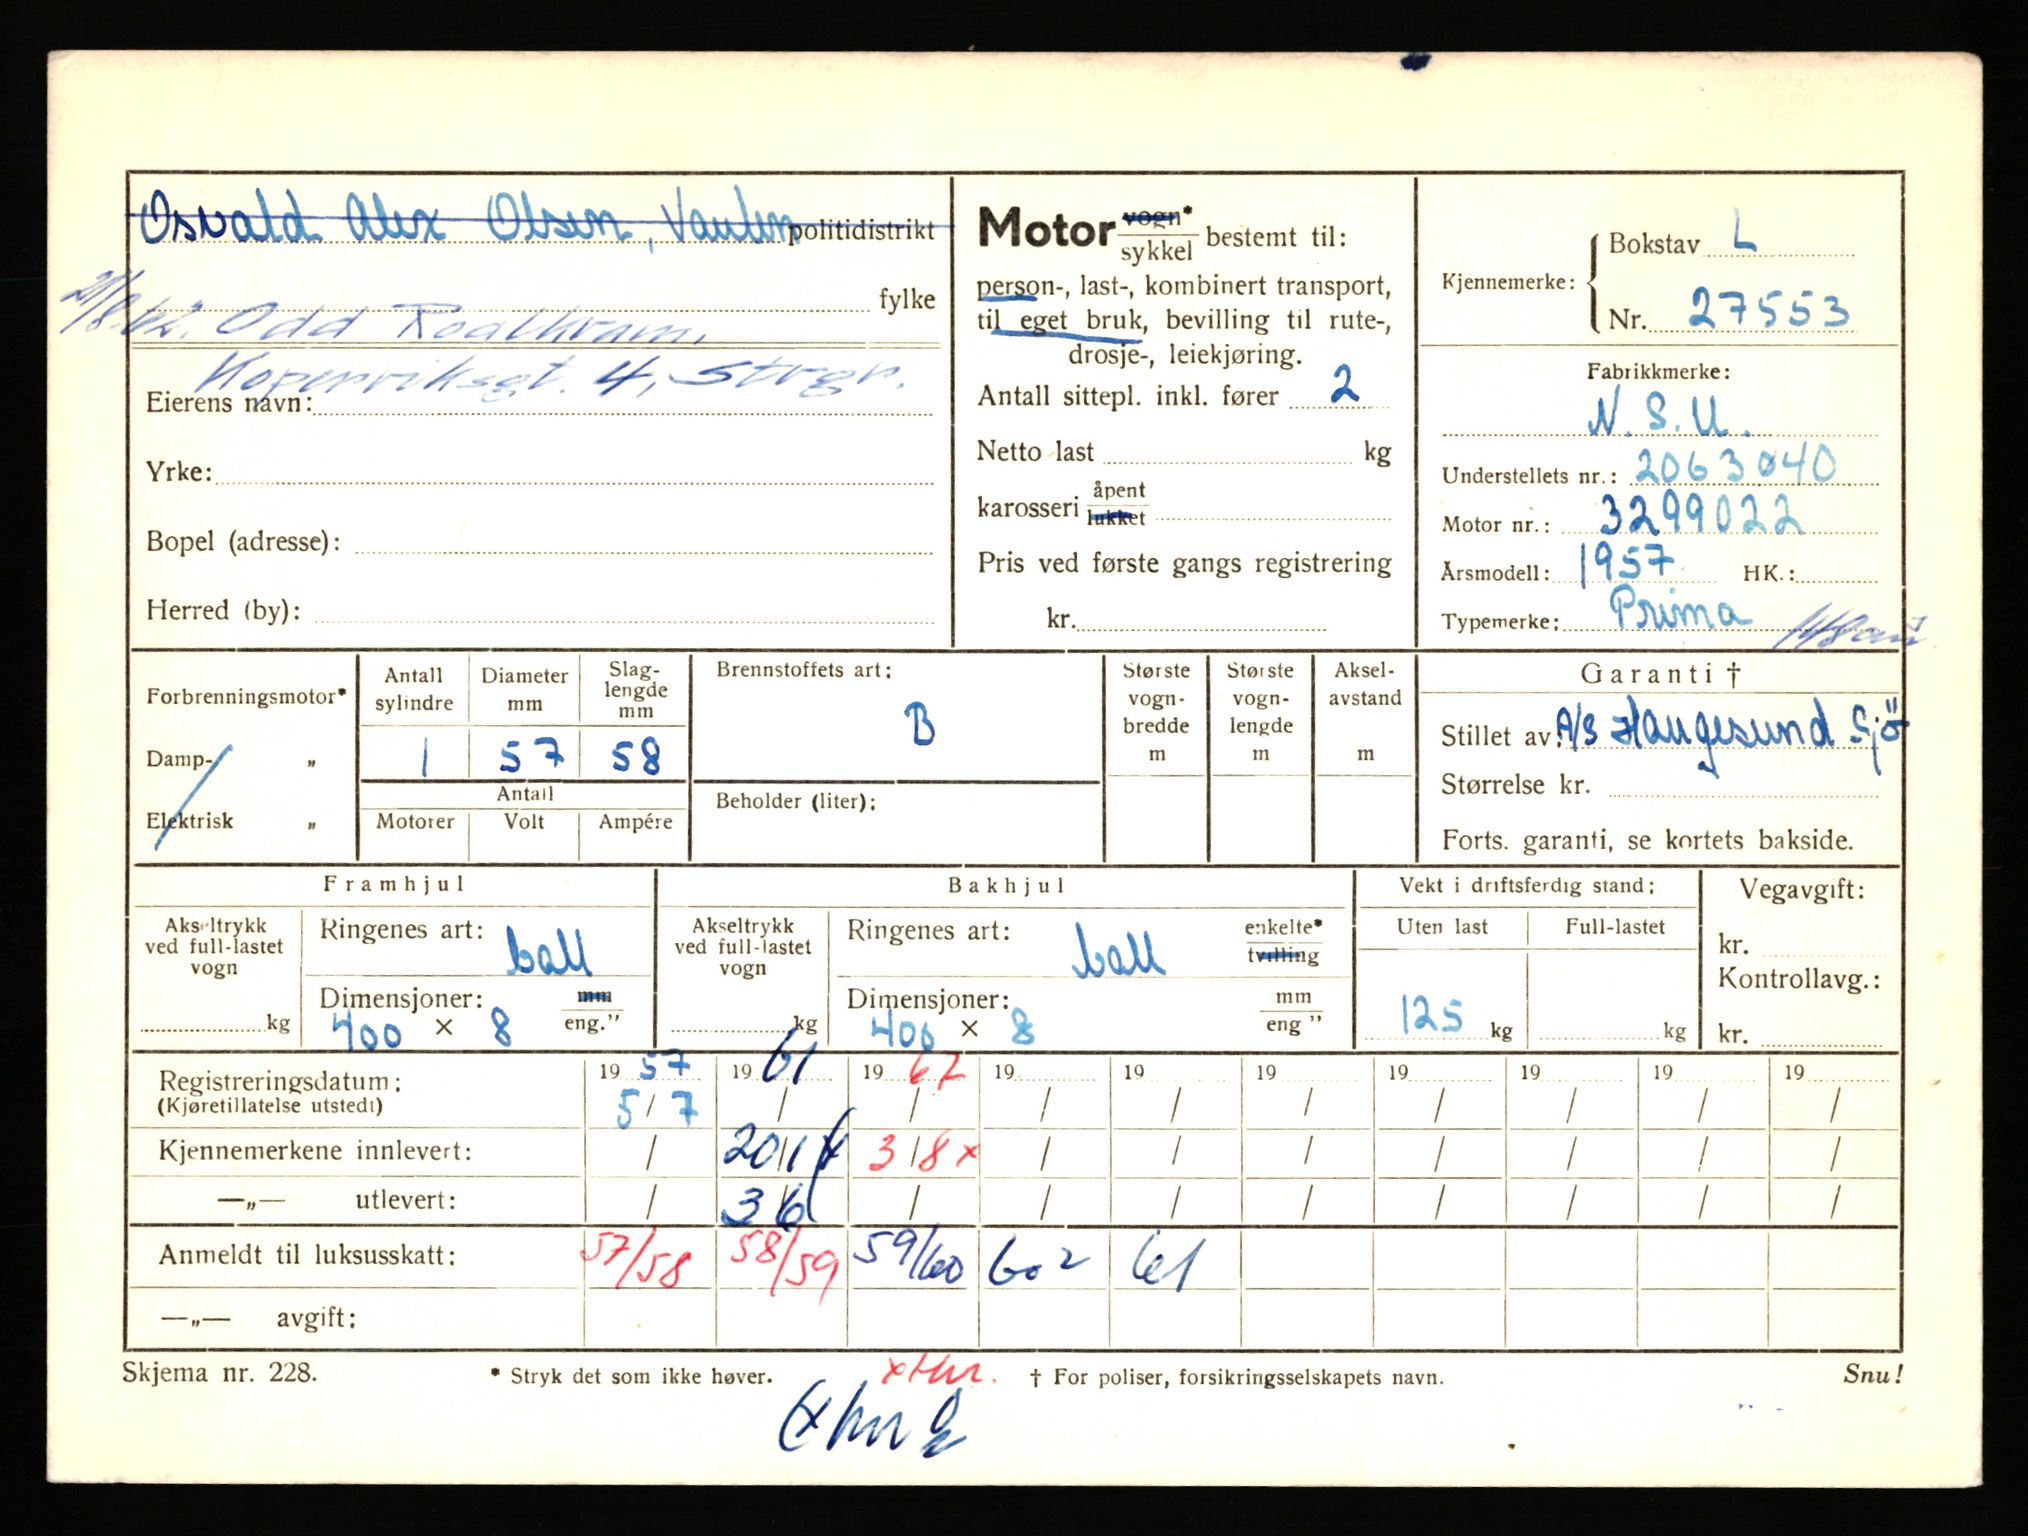 Osvald Alex Olsen, Vaulen politidistrikt
21/8.62. Odd Roalkvam, fylke
Kopervikgt. 4, Strgr.
Eierens navn:
Yrke:
Bopel (adresse):
Herred (by):
Motor vogn* sykkel bestemt til:
person-, last-, kombinert transport,
til eget bruk, bevilling til rute-,
drosje-, leiekjøring.
Antall sittepl. inkl. fører 2
Netto last kg
karosseri åpent lukket
Pris ved første gangs registrering
kr.
Kjennemerke: Bokstav L
Nr. 27553
Fabrikkmerke:
N.S.U.
Understellets nr.: 2063040
Motor nr.: 3299022
Årsmodell: 1957 HK.:
Typemerke: Prima
Forbrenningsmotor*
Damp- „
Elektrisk „
Antall sylindre 1
Diameter mm 57
Slag-lengde mm 58
Antall
Motorer Volt Ampére
Brennstoffets art:
B
Beholder (liter):
Største vogn-bredde m
Største vogn-lengde m
Aksel-avstand m
Garanti †
Stillet av: A/S Haugesund Sjö
Størrelse kr.
Forts. garanti, se kortets bakside.
Framhjul
Akseltrykk ved full-lastet vogn kg
Ringenes art: ball
Dimensjoner: mm
400 × 8 eng.”
Bakhjul
Akseltrykk ved full-lastet vogn kg
Ringenes art: ball enkelte* tvilling
Dimensjoner: mm
400 × 8 eng ”
Vekt i driftsferdig stand:
Uten last Full-lastet
125 kg kg
Vegavgift:
kr.
Kontrollavg.:
kr.
Registreringsdatum: 19 57 19 61 19 62 19 19 19 19 19 19 19
(Kjøretillatelse utstedt) 5/7 / / / / / / / / /
Kjennemerkene innlevert: / 20/1 x 3/8 x / / / / / / /
—„— utlevert: / 3/6 / / / / / / / /
Anmeldt til luksusskatt: 57/58 58/59 59/60 60 2 61
—„— avgift:
Skjema nr. 228. * Stryk det som ikke høver. † For poliser, forsikringsselskapets navn. Snu!